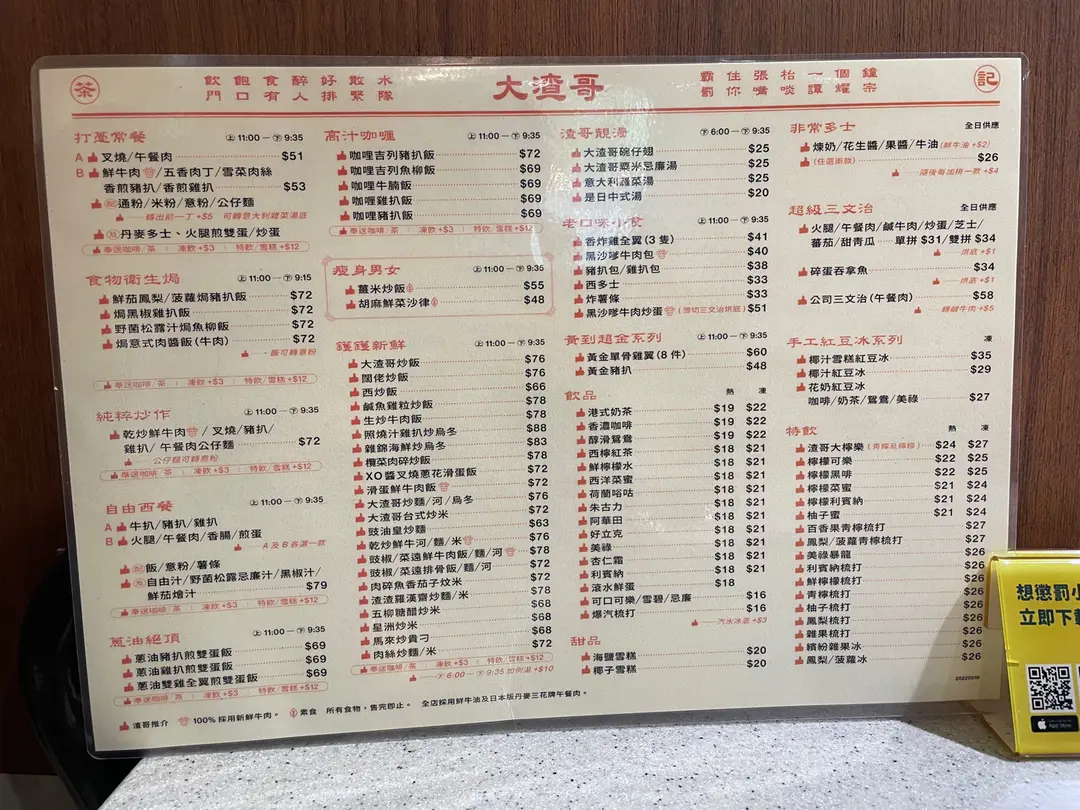 茶
飲飽食醉好散水
門口有人排緊隊
大渣哥
霸住張枱一個鐘
罰你嘴啖譚耀宗
記
打躉常餐 上11:00 — 下9:35
A 叉燒/午餐肉 $51
B 鮮牛肉/五香肉丁/雪菜肉絲
香煎豬扒/香煎雞扒 $53
配 通粉/米粉/意粉/公仔麵
轉出前一丁+$5 可轉意大利雜菜湯底
及 丹麥多士、火腿煎雙蛋/炒蛋
奉送咖啡/茶 | 凍飲+$3 | 特飲/雪糕+$12
食物衛生焗 上11:00 — 下9:15
鮮茄鳳梨/菠蘿焗豬扒飯 $72
焗黑椒雞扒飯 $72
野菌松露汁焗魚柳飯 $72
焗意式肉醬飯(牛肉) $72
飯可轉意粉
奉送咖啡/茶 | 凍飲+$3 | 特飲/雪糕+$12
純粹炒作 上11:00 — 下9:35
乾炒鮮牛肉/叉燒/豬扒/
雞扒/午餐肉公仔麵 $72
公仔麵可轉意粉
奉送咖啡/茶 | 凍飲+$3 | 特飲/雪糕+$12
自由西餐 上11:00 — 下9:35
A 牛扒/豬扒/雞扒
B 火腿/午餐肉/香腸/煎蛋
A及B各選一款
配 飯/意粉/薯條
及 自由汁/野菌松露忌廉汁/黑椒汁/
鮮茄燴汁 $79
奉送咖啡/茶 | 凍飲+$3 | 特飲/雪糕+$12
蔥油絕頂 上11:00 — 下9:35
蔥油豬扒煎雙蛋飯 $69
蔥油雞扒煎雙蛋飯 $69
蔥油雙雞全翼煎雙蛋飯 $69
奉送咖啡/茶 | 凍飲+$3 | 特飲/雪糕+$12
高汁咖喱 上11:00 — 下9:35
咖哩吉列豬扒飯 $72
咖哩吉列魚柳飯 $69
咖哩牛腩飯 $69
咖喱雞扒飯 $69
咖哩豬扒飯 $69
奉送咖啡/茶 | 凍飲+$3 | 特飲/雪糕+$12
瘦身男女 上11:00 — 下9:35
薑米炒飯 $55
胡麻鮮菜沙律 $48
鑊鑊新鮮 上11:00 — 下9:35
大渣哥炒飯 $76
闊佬炒飯 $76
西炒飯 $66
鹹魚雞粒炒飯 $78
生炒牛肉飯 $78
照燒汁雞扒炒烏冬 $88
雜錦海鮮炒烏冬 $83
欖菜肉碎炒飯 $78
XO醬叉燒蔥花滑蛋飯 $72
滑蛋鮮牛肉飯 $72
大渣哥炒麵/河/烏冬 $76
大渣哥台式炒米 $72
豉油皇炒麵 $63
乾炒鮮牛河/麵/米 $76
豉椒/菜遠鮮牛肉飯/麵/河 $78
豉椒/菜遠排骨飯/麵/河 $72
肉碎魚香茄子炆米 $72
渣渣羅漢齋炒麵/米 $78
五柳糖醋炒米 $68
星洲炒米 $68
馬來炒貴刁 $68
肉絲炒麵/米 $72
奉送咖啡/茶 | 凍飲+$3 | 特飲/雪糕+$12
下6:00 — 下9:35加例湯+$10
渣哥靚湯 下6:00 — 下9:35
大渣哥碗仔翅 $25
大渣哥粟米忌廉湯 $25
意大利雜菜湯 $25
是日中式湯 $20
老口味小食 上11:00 — 下9:35
香炸雞全翼(3隻) $41
黑沙嗲牛肉包 $40
豬扒包/雞扒包 $38
西多士 $33
炸薯條 $33
黑沙嗲牛肉炒蛋(薄切三文治烘底) $51
黃到超金系列 上11:00 — 下9:35
黃金單骨雞翼(8件) $60
黃金豬扒 $48
飲品 熱 凍
港式奶茶 $19 $22
香濃咖啡 $19 $22
醇滑鴛鴦 $19 $22
西檸紅茶 $18 $21
鮮檸檬水 $18 $21
西洋菜蜜 $18 $21
荷蘭唂咕 $18 $21
朱古力 $18 $21
阿華田 $18 $21
好立克 $18 $21
美祿 $18 $21
杏仁霜 $18 $21
利賓納 $18 $21
滾水鮮蛋 $18
可口可樂/雪碧/忌廉 $16
爆汽梳打 $16
汽水冰底+$3
甜品
海鹽雪糕 $20
椰子雪糕 $20
非常多士 全日供應
煉奶/花生醬/果醬/牛油(鮮牛油+$2)
(任選兩款) $26
隨後每加拼一款+$4
超級三文治 全日供應
火腿/午餐肉/鹹牛肉/炒蛋/芝士/
蕃茄/甜青瓜 單拼$31/雙拼$34
烘底+$1
碎蛋吞拿魚 $34
烘底+$1
公司三文治(午餐肉) $58
轉鹹牛肉+$5
手工紅豆冰系列 凍
椰汁雪糕紅豆冰 $35
椰汁紅豆冰 $29
花奶紅豆冰
咖啡/奶茶/鴛鴦/美祿 $27
特飲 熱 凍
渣哥大檸樂(青檸及檸檬) $24 $27
檸檬可樂 $22 $25
檸檬黑啡 $22 $25
檸檬菜蜜 $21 $24
檸檬利賓納 $21 $24
柚子蜜 $21 $24
百香果青檸梳打 $27
鳳梨/菠蘿青檸梳打 $27
美祿暴龍 $26
利賓納梳打 $26
鮮檸檬梳打 $26
青檸梳打 $26
柚子梳打 $26
鳳梨梳打 $26
雜果梳打 $26
繽紛雜果冰 $26
鳳梨/菠蘿冰 $26
20220510
渣哥推介 100%採用新鮮牛肉。 素食 所有食物,售完即止。 全店採用鮮牛油及日本版丹麥三花牌午餐肉。
想懲罰小
立即下載
App Store